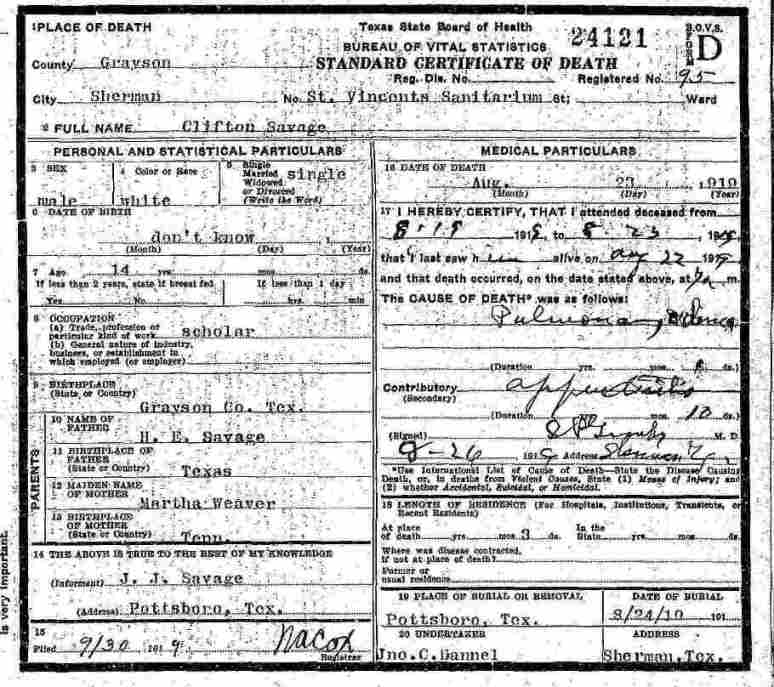 1 PLACE OF DEATH
County Grayson
City Sherman
Texas State Board of Health
BUREAU OF VITAL STATISTICS
STANDARD CERTIFICATE OF DEATH
24121
B.O.V.S.
FORM D
Reg. Dis. No. Registered No. 95
No. St. Vincents Sanitarium St; Ward
2 FULL NAME Clifton Savage
PERSONAL AND STATISTICAL PARTICULARS
3 SEX male
4 Color or Race white
5 Single Married Widowed or Divorced (Write the Word) single
6 DATE OF BIRTH
don't know
(Month) (Day) (Year)
7 Age 14 yrs. mos. ds.
If less than 2 years, state if breast fed
Yes No.
If less than 1 day
hrs. min
8 OCCUPATION
(a) Trade, profession or
particular kind of work scholar
(b) General nature of industry,
business, or establishment in
which employed (or employer)
9 BIRTHPLACE
(State or Country)
Grayson Co. Tex.
PARENTS
10 NAME OF
FATHER
H. E. Savage
11 BIRTHPLACE OF
FATHER
(State or Country) Texas
12 MAIDEN NAME
OF MOTHER
Martha Weaver
13 BIRTHPLACE
OF MOTHER
(State or Country) Tenn.
14 THE ABOVE IS TRUE TO THE BEST OF MY KNOWLEDGE
(Informant) J. J. Savage
(Address) Pottsboro, Tex.
15
Filed 9/30 1919 Registrar
MEDICAL PARTICULARS
16 DATE OF DEATH
Aug. 23 1919
(Month) (Day) (Year)
17 I HEREBY CERTIFY, THAT I attended deceased from
191 to 8 23 191
that I last saw him alive on Aug 22 1919
and that death occurred, on the date stated above, at m.
The CAUSE OF DEATH* was as follows:
Pulmonary
(Duration) yrs. mos. ds.)
Contributory
(Secondary)
(Duration) yrs. mos. 10 ds.)
(Signed) M. D.
191 Address Sherman
*Use International List of Cause of Death—State the Disease Causing
Death, or, in deaths from Violent Causes, State (1) Means of Injury; and
(2) whether Accidental, Suicidal, or Homicidal.
18 LENGTH OF RESIDENCE (For Hospitals, Institutions, Transients, or
Recent Residents)
At place
of death yrs. mos. 3 ds.
In the
State yrs. mos. ds.
Where was disease contracted,
if not at place of death?
Former or
usual residence
19 PLACE OF BURIAL OR REMOVAL
Pottsboro, Tex.
DATE OF BURIAL
8/24/19 191
20 UNDERTAKER
Jno. C. Dannel
ADDRESS
Sherman, Tex.
is very important.